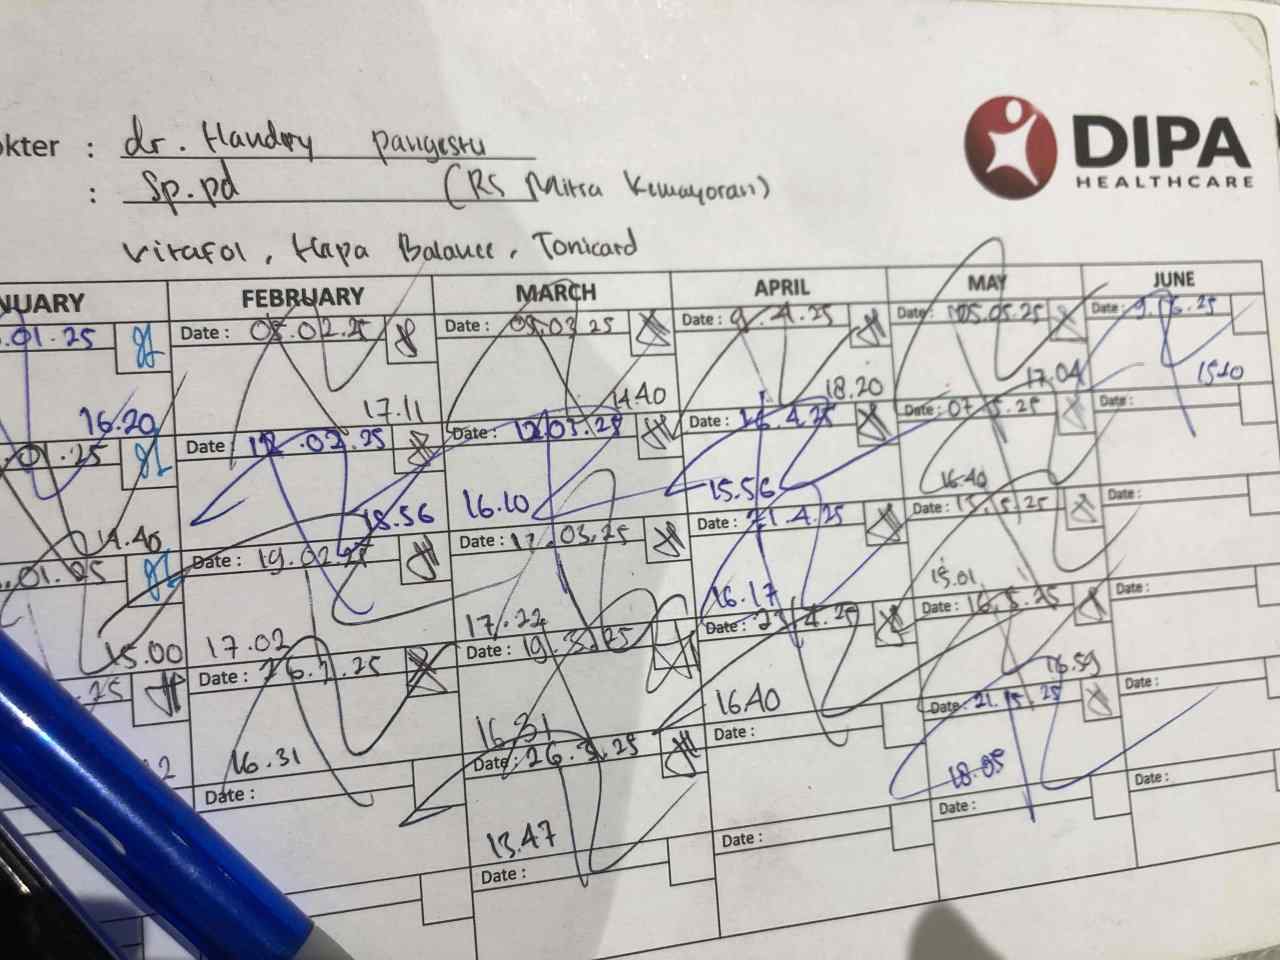 okter : dr. Handry Pangestu
: Sp.pd (RS Mitra Kemayoran)
Vitafol, Hepa Balance, Tonicard
DIPA
HEALTHCARE
NUARY FEBRUARY MARCH APRIL MAY JUNE
.01.25 Date : 05.02.25 Date : 05.03 25 Date : 9.4.25 Date : 05.05.25 Date : 9.06.25
16.20 17.11 14.40 18.20 17.04 15.10
01.25 Date : 12.02.25 Date : 12.03.25 Date : 16.4.25 Date : 07.5.25 Date :
14.40 18.56 16.10 15.56 16.40
.01.25 Date : 19.02.25 Date : 17.03.25 Date : 21.4.25 Date : 15.5.25 Date :
15.00 17.02 17.22 16.17 15.01
.25 Date : 26.2.25 Date : 19.3.25 Date : 23.4.25 Date : 16.5.25 Date :
16.31 16.31 16.40 16.59
Date : Date : 26.3.25 Date : Date : 21.5.25 Date :
13.47 18.05
Date : Date : Date : Date :